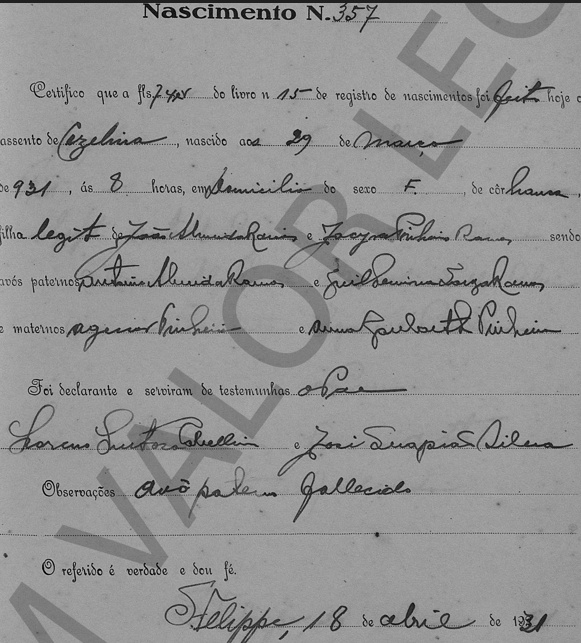 Nascimento N. 357
Certifico que a fls. 74v do livro n 15 de registro de nascimentos foi feito hoje o
assento de Cezelina, nascido aos 29 de Março
de 931, ás 8 horas, em Domicilio do sexo F. de côr branca,
filha legit de João Almeida Ramos e Jacyra Pinheiro Ramos sendo
avós paternos Antonio Almeida Ramos e Guilhermina Souza Ramos
e maternos Agenor Pinheiro e Anna Pinheiro
Foi declarante e serviram de testemunhas o Pae
e José Silva
Observações avô paterno fallecido
O referido é verdade e dou fé.
S. Felippe, 18 de abril de 1931
M VALOR LEG